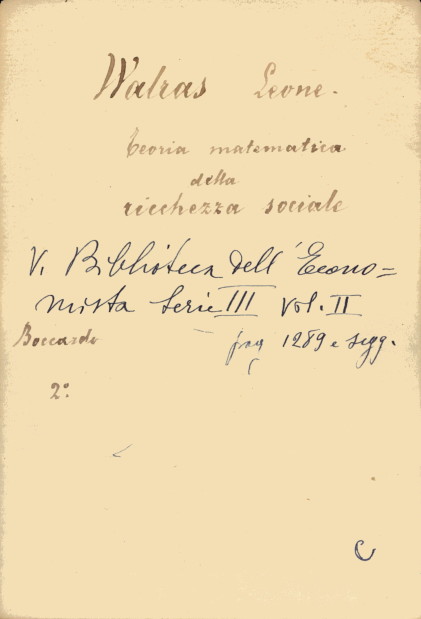 Walras Leone.
Teoria matematica
della
ricchezza sociale
V. Biblioteca dell'Econo=
mista Serie III Vol. II
Boccardo pag 1289 e segg.
2º.